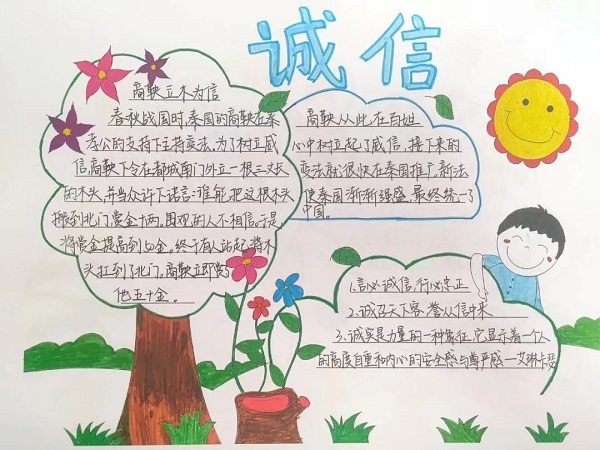 诚信
商鞅立木为信
春秋战国时,秦国的商鞅在秦
孝公的支持下主持变法,为了树立威
信,商鞅下令在都城南门外立一根三丈长
的木头,并当众许下诺言:谁能把这根木头
搬到北门,赏金十两。围观的人不相信。于是
将赏金提高到50金。终于有人站起,将木
头扛到了北门。商鞅立即赏了
他五十金。
商鞅从此在百姓
心中树立起了威信,接下来的
变法就很快在秦国推广,新法
使秦国渐渐强盛,最终统一了
中国。
1.言必诚信,行必忠正
2.诚召天下客,誉从信中来
3.诚实是力量的一种象征,它显示着一个人
的高度自重和内心的安全感与尊严感—艾琳卡瑟